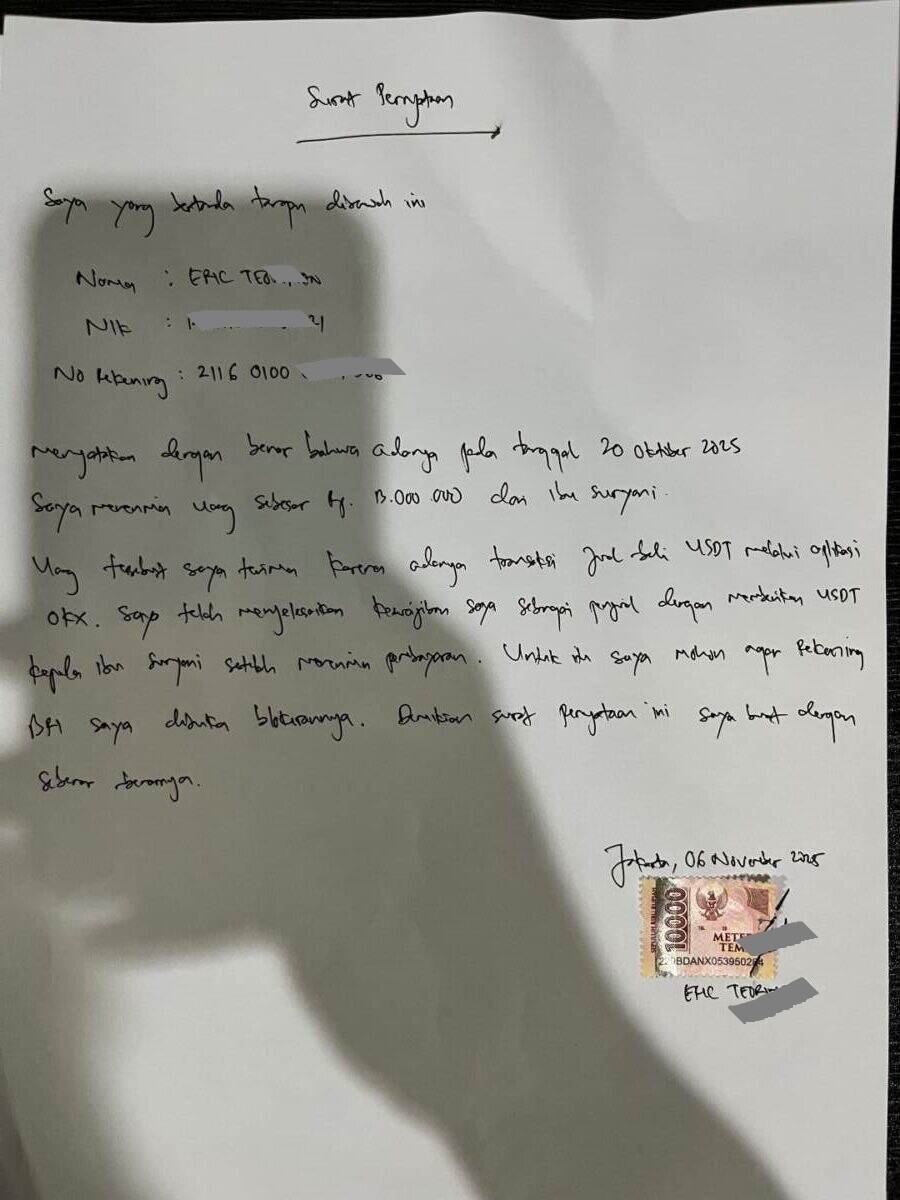 Surat Pernyataan
Saya yang bertanda tangan dibawah ini
Nama : ERIC
NIK : 21
No Rekening : 2116 0100
Menyatakan dengan benar bahwa adanya pada tanggal 20 Oktober 2025
Saya menerima uang sebesar Rp. 13.000.000 dari Ibu Suryani.
Uang tersebut saya terima karena adanya transaksi jual beli USDT melalui aplikasi
OKX. Saya telah menyelesaikan kewajiban saya sebagai penjual dengan memberikan USDT
kepada ibu Suryani setelah menerima pembayaran. Untuk itu saya mohon agar Rekening
BRI saya dibuka blokirannya. Demikian surat pernyataan ini saya buat dengan
sebenar benarnya.
Jakarta, 06 November 2025
SEPULUH RIBU RUPIAH
10000
ERIC